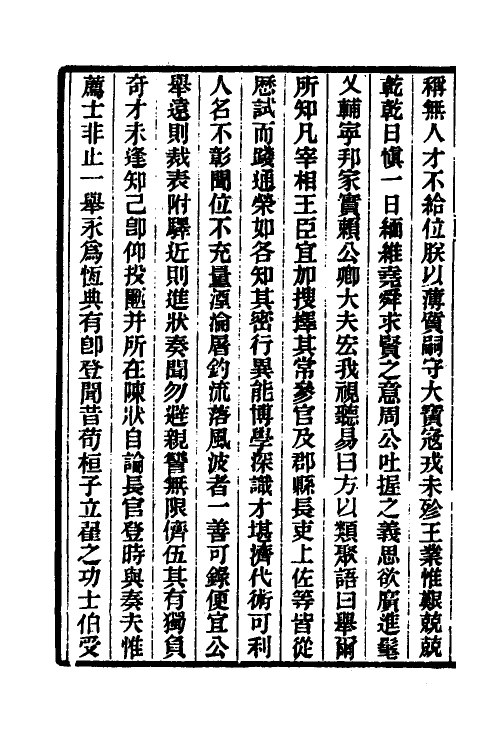 稱無人才不給位朕以薄質嗣守大寶寇戎未殄王業惟艱兢兢
乾乾日愼一日緬維堯舜求賢之意周公吐握之義思欲廣進髦
乂輔寧邦家實賴公卿大夫宏我視聽易曰方以類聚語曰舉爾
所知凡宰相王臣宜加搜擇其常參官及郡縣長吏上佐等皆從
歷試而踐通榮如各知其密行異能博學深識才堪濟代術可利
人名不彰聞位不充量湮淪屠釣流落風波者一善可錄便宜公
舉遠則裁表附驛近則進狀奏聞勿避親讐無限儕伍其有獨負
奇才未逢知己卽仰投匭并所在陳狀自論長官登時與奏夫惟
薦士非止一舉永爲恆典有卽登聞昔荀桓子立翟之功士伯受